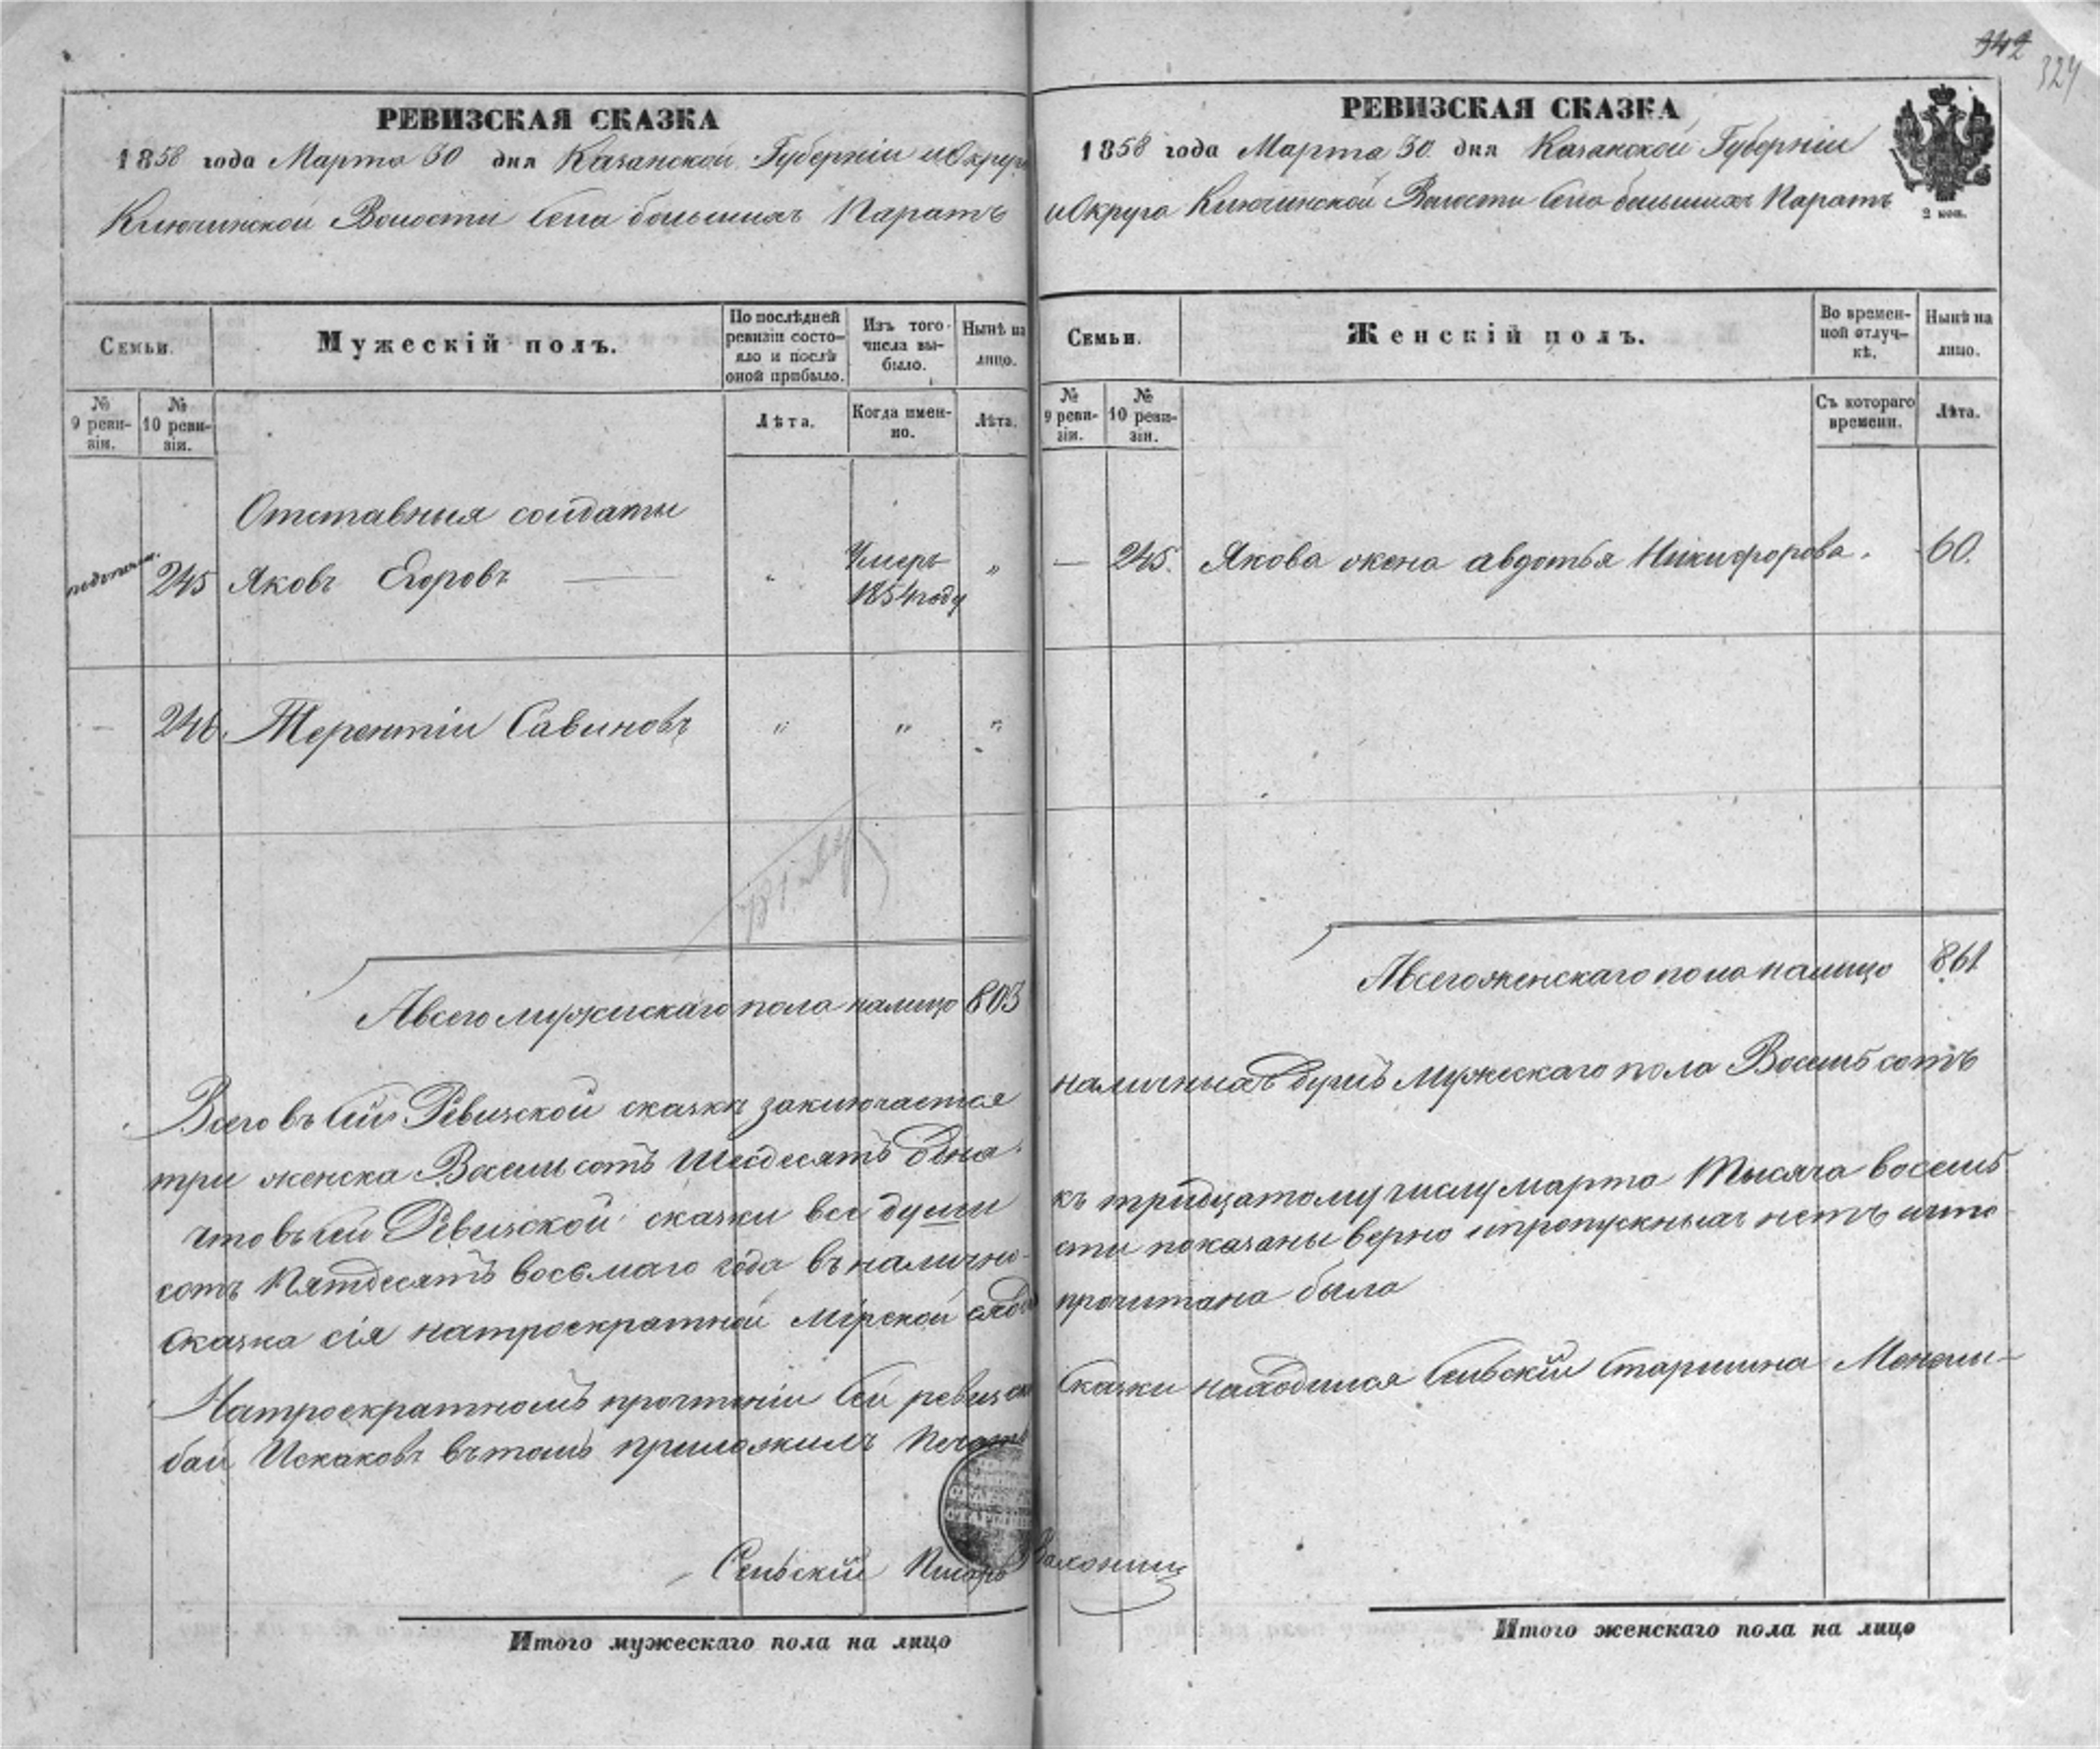 342
324
РЕВИЗСКАЯ СКАЗКА
1858 года Марта 30 дня Казанской Губерніи и Округа
Ключинской Волости Села большихъ Паратъ
Семьи.
Мужескій полъ.
По послѣдней ревизіи состояло и послѣ оной прибыло.
Изъ того числа выбыло.
Нынѣ на лицо.
№ 9 ревизіи.
№ 10 ревизіи.
Лѣта.
Когда именно.
Лѣта.
Отставныя солдаты
245 Яковъ Егоровъ — " Умеръ 1854 году "
— 246 Терентіи Савиновъ " " "
А всего мужискаго пола налицо 803
Всего въ сей Ревизской сказки заключается
три женска Восемь сотъ Шесдесятъ Одна
что въ сей Ревизской сказки все души
сотъ Пятдесятъ восьмаго года въ налично-
сказка сія на троекратной мірской
На троекратномъ прочтеніи Сей
бай Искаковъ въ томъ приложилъ Печать
Сельскій Писарь
Итого мужескаго пола на лицо
РЕВИЗСКАЯ СКАЗКА
1858 года Марта 30 дня Казанской Губерніи
и Округа Ключинской Волости Села большихъ Паратъ
2 коп.
Семьи.
Женскій полъ.
Во временной отлучкѣ.
Нынѣ на лицо.
№ 9 ревизіи.
№ 10 ревизіи.
Съ котораго времени.
Лѣта.
— 245. Якова жена авдотья Никифорова. 60.
А всего женскаго пола налицо 861
наличныхъ душъ мужескаго пола Восемь сотъ
къ тридцатому числу марта Тысяча восемь
сти показаны верно и пропускныхъ нетъ и что
прочитана была
Сказки находился Сельскій Старшина
Итого женскаго пола на лицо